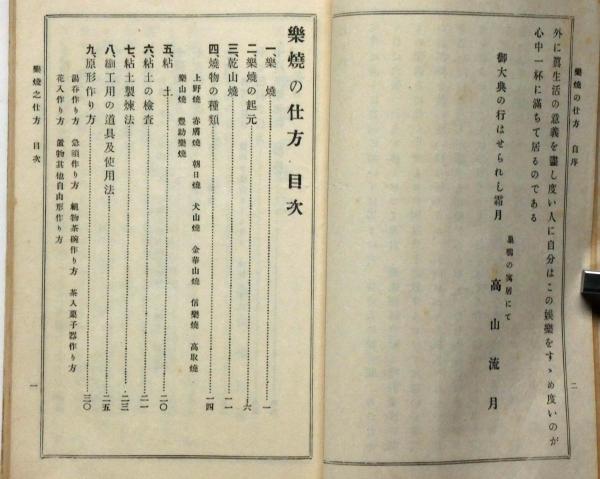 樂燒の仕方 自序
外に眞生活の意義を盡し度い人に自分はこの娯樂をすゝめ度いのが
心中一杯に滿ちて居るのである
御大典の行はせられし霜月
巣鴨の寓居にて
高山流月
二
樂燒の仕方 目次
一、樂燒 一
二、樂燒の起元 六
三、乾山燒 一一
四、燒物の種類 一四
上野燒 赤膚燒 朝日燒 犬山燒 金華山燒 信樂燒 高取燒
樂山燒 豊助樂燒
五、粘土 二〇
六、粘土の檢査 二一
七、粘土製煉法 二三
八、細工用の道具及使用法 二五
九、原形作り方 三〇
湯呑作り方 急須作り方 組物茶碗作り方 茶入菓子器作り方
花入作り方 置物其他自由形作り方
樂燒之仕方 目次
一